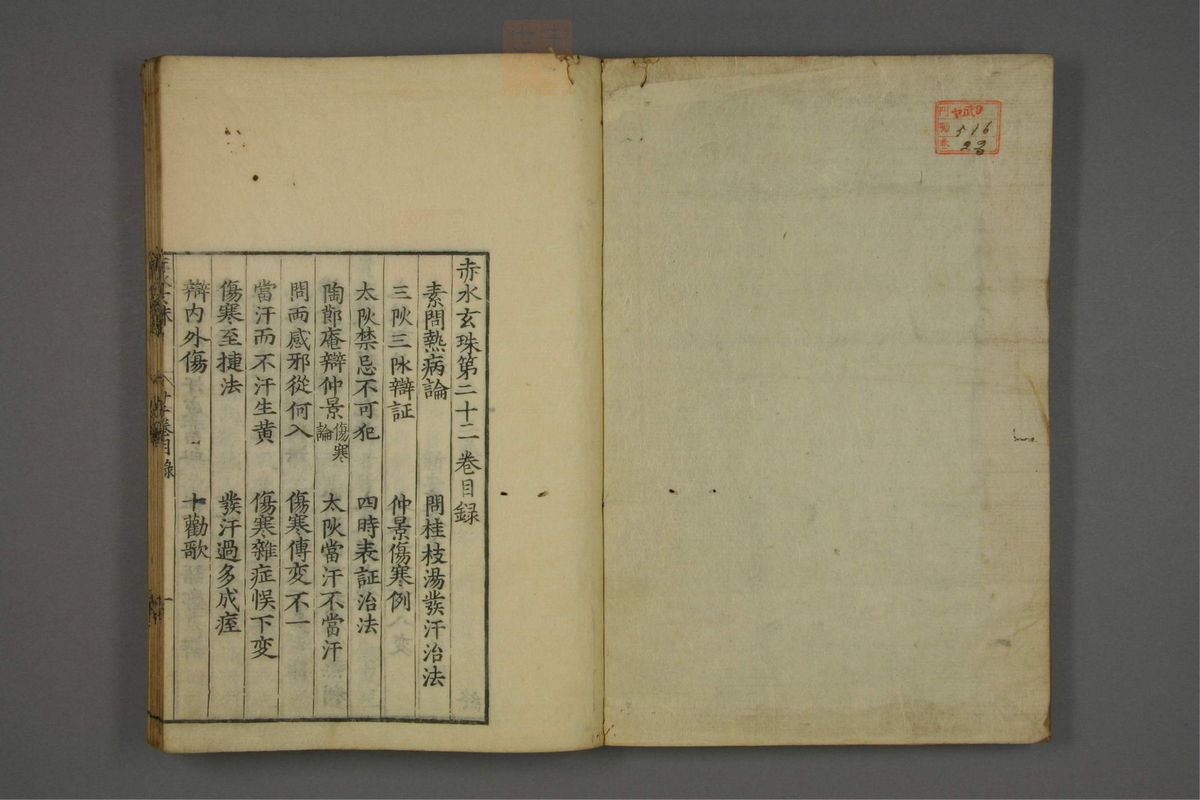 赤水玄珠第二十二卷目録
素問熱病論　問桂枝湯發汗治法
三陰三陽辯証　仲景傷寒例
太陽禁忌不可犯　四時表証治法
陶節庵辯仲景傷寒論　太陽當汗不當汗
問兩感邪從何入　傷寒傳変不一
當汗而不汗生黄　傷寒雜症悞下変
傷寒至捷法　發汗過多成痓
辯内外傷　十勸歌
卷目録
一
516